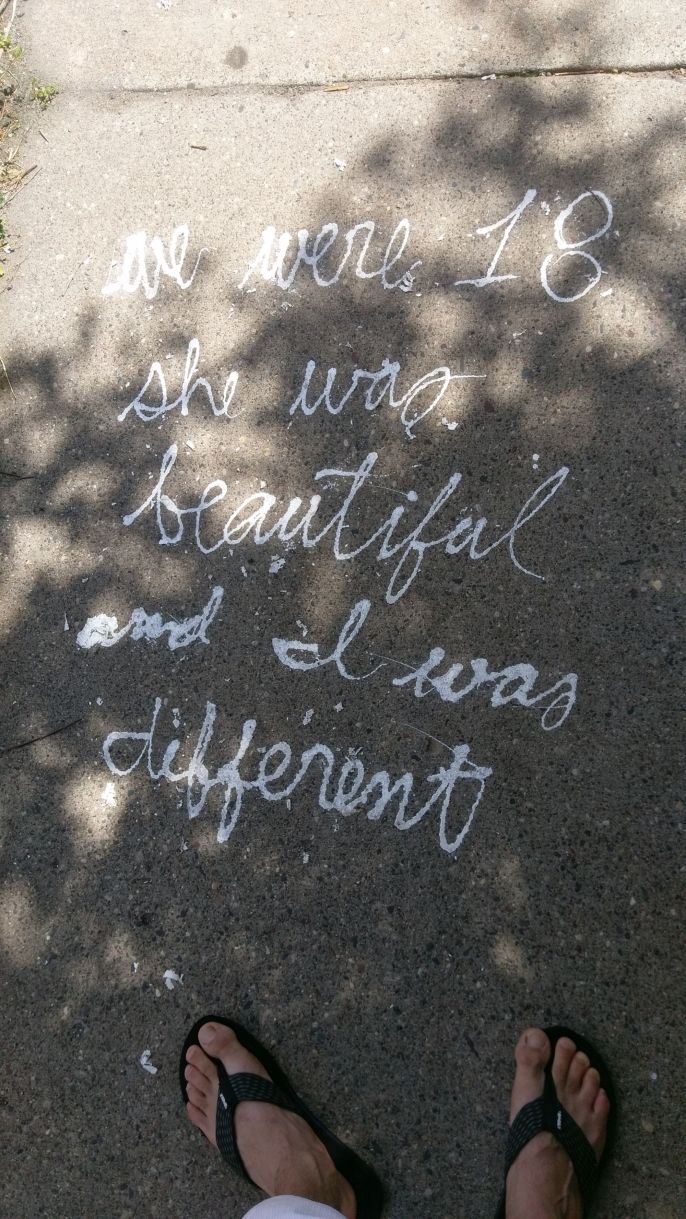 we were 18
she was
beautiful
and I was
different